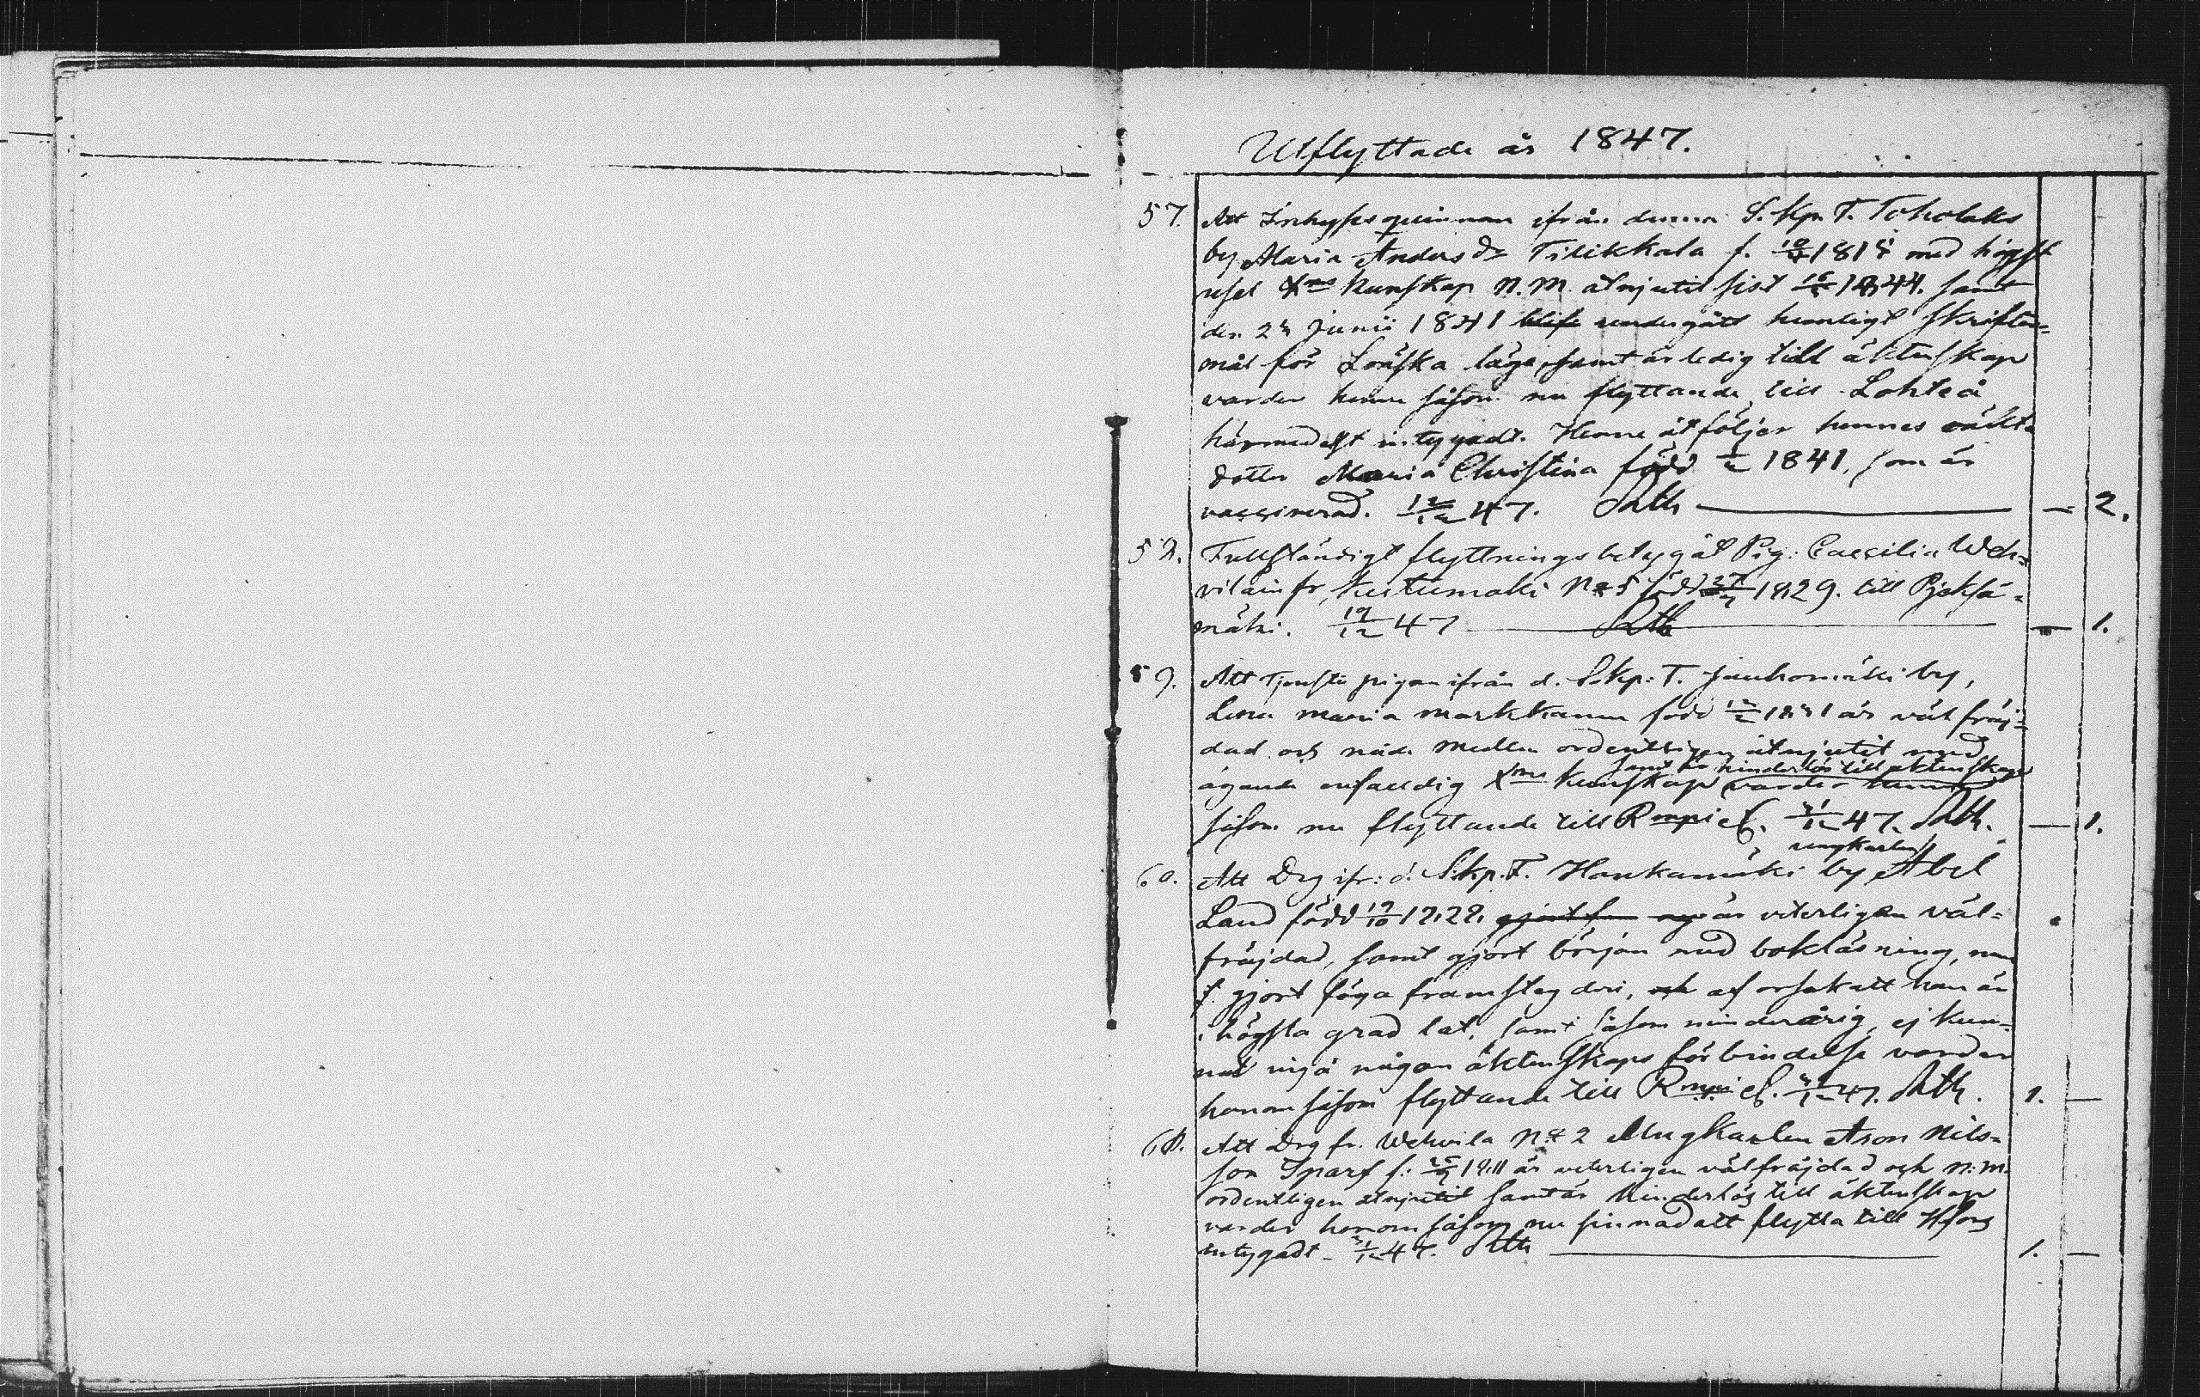 Utflyttade år 1847.
57. Att Inhyses qvinnan ifrån denna S. Kp. T. Toholaks
by Maria Anders dr Tilikkala f. 1814 med högst
usel Xns kunskap N.M. åtnjutit sist 1844. samt
den 24 Junii 1841 undergått hemligt skrifter=
mål för Lönska läge, samt är ledig till äktenskap
varder henne såsom nu flyttande till Lohteå
härmedelst intygadt. Henne åtföljer hennes oäkta
dotter Maria Christina född 1841, som är
vaccinerad. 12/12 47. Sth — 2.
58. Fullständigt flyttningsbetyg åt Pig: Caecilia Weh=
viläin fr, Kustumäki No 5 född 27/7 1829. till Pjeksä=
mäki. 19/12 47 Sth — 1.
59. Att Tjenste pigan ifrån d. S.Kp: T. Jauhomäki by,
Lena Maria Markkanen född 1831 är väl fräj=
dad och nåde medlen ordentligen åtnjutit med
samt är hinderlös till äktenskap
ägande enfaldig Xns kunskap varder henne
såsom nu flyttande till Rmpi Cf. 31/12 47. Sth. — 1.
ungkarlen
60. Att Drg ifr: d. S.kp. T. Haukamäki by Abel
Land född 19/10 1828. är veterligen väl=
fräjdad, samt gjort början med bokläsning, men
f. gjort föga framsteg deri, af orsak att han är
i högsta grad lat, samt såsom minderårig, ej kun=
nat ingå någon äktenskaps förbindelse varder
honom såsom flyttande till Rmpi Cf. 31/12 47. Sth. 1. —
61. Att Drg fr. Wehvilä No 2 Ungkarlen Aron Nils=
son Sparf f: 1811 är veterligen välfräjdad och N:M.
ordentligen åtnjutit samt är hinderlös till äktenskap
varder honom såsom nu sinnad att flytta till Hfors
intygadt — 31/12 47. Sth — 1. —